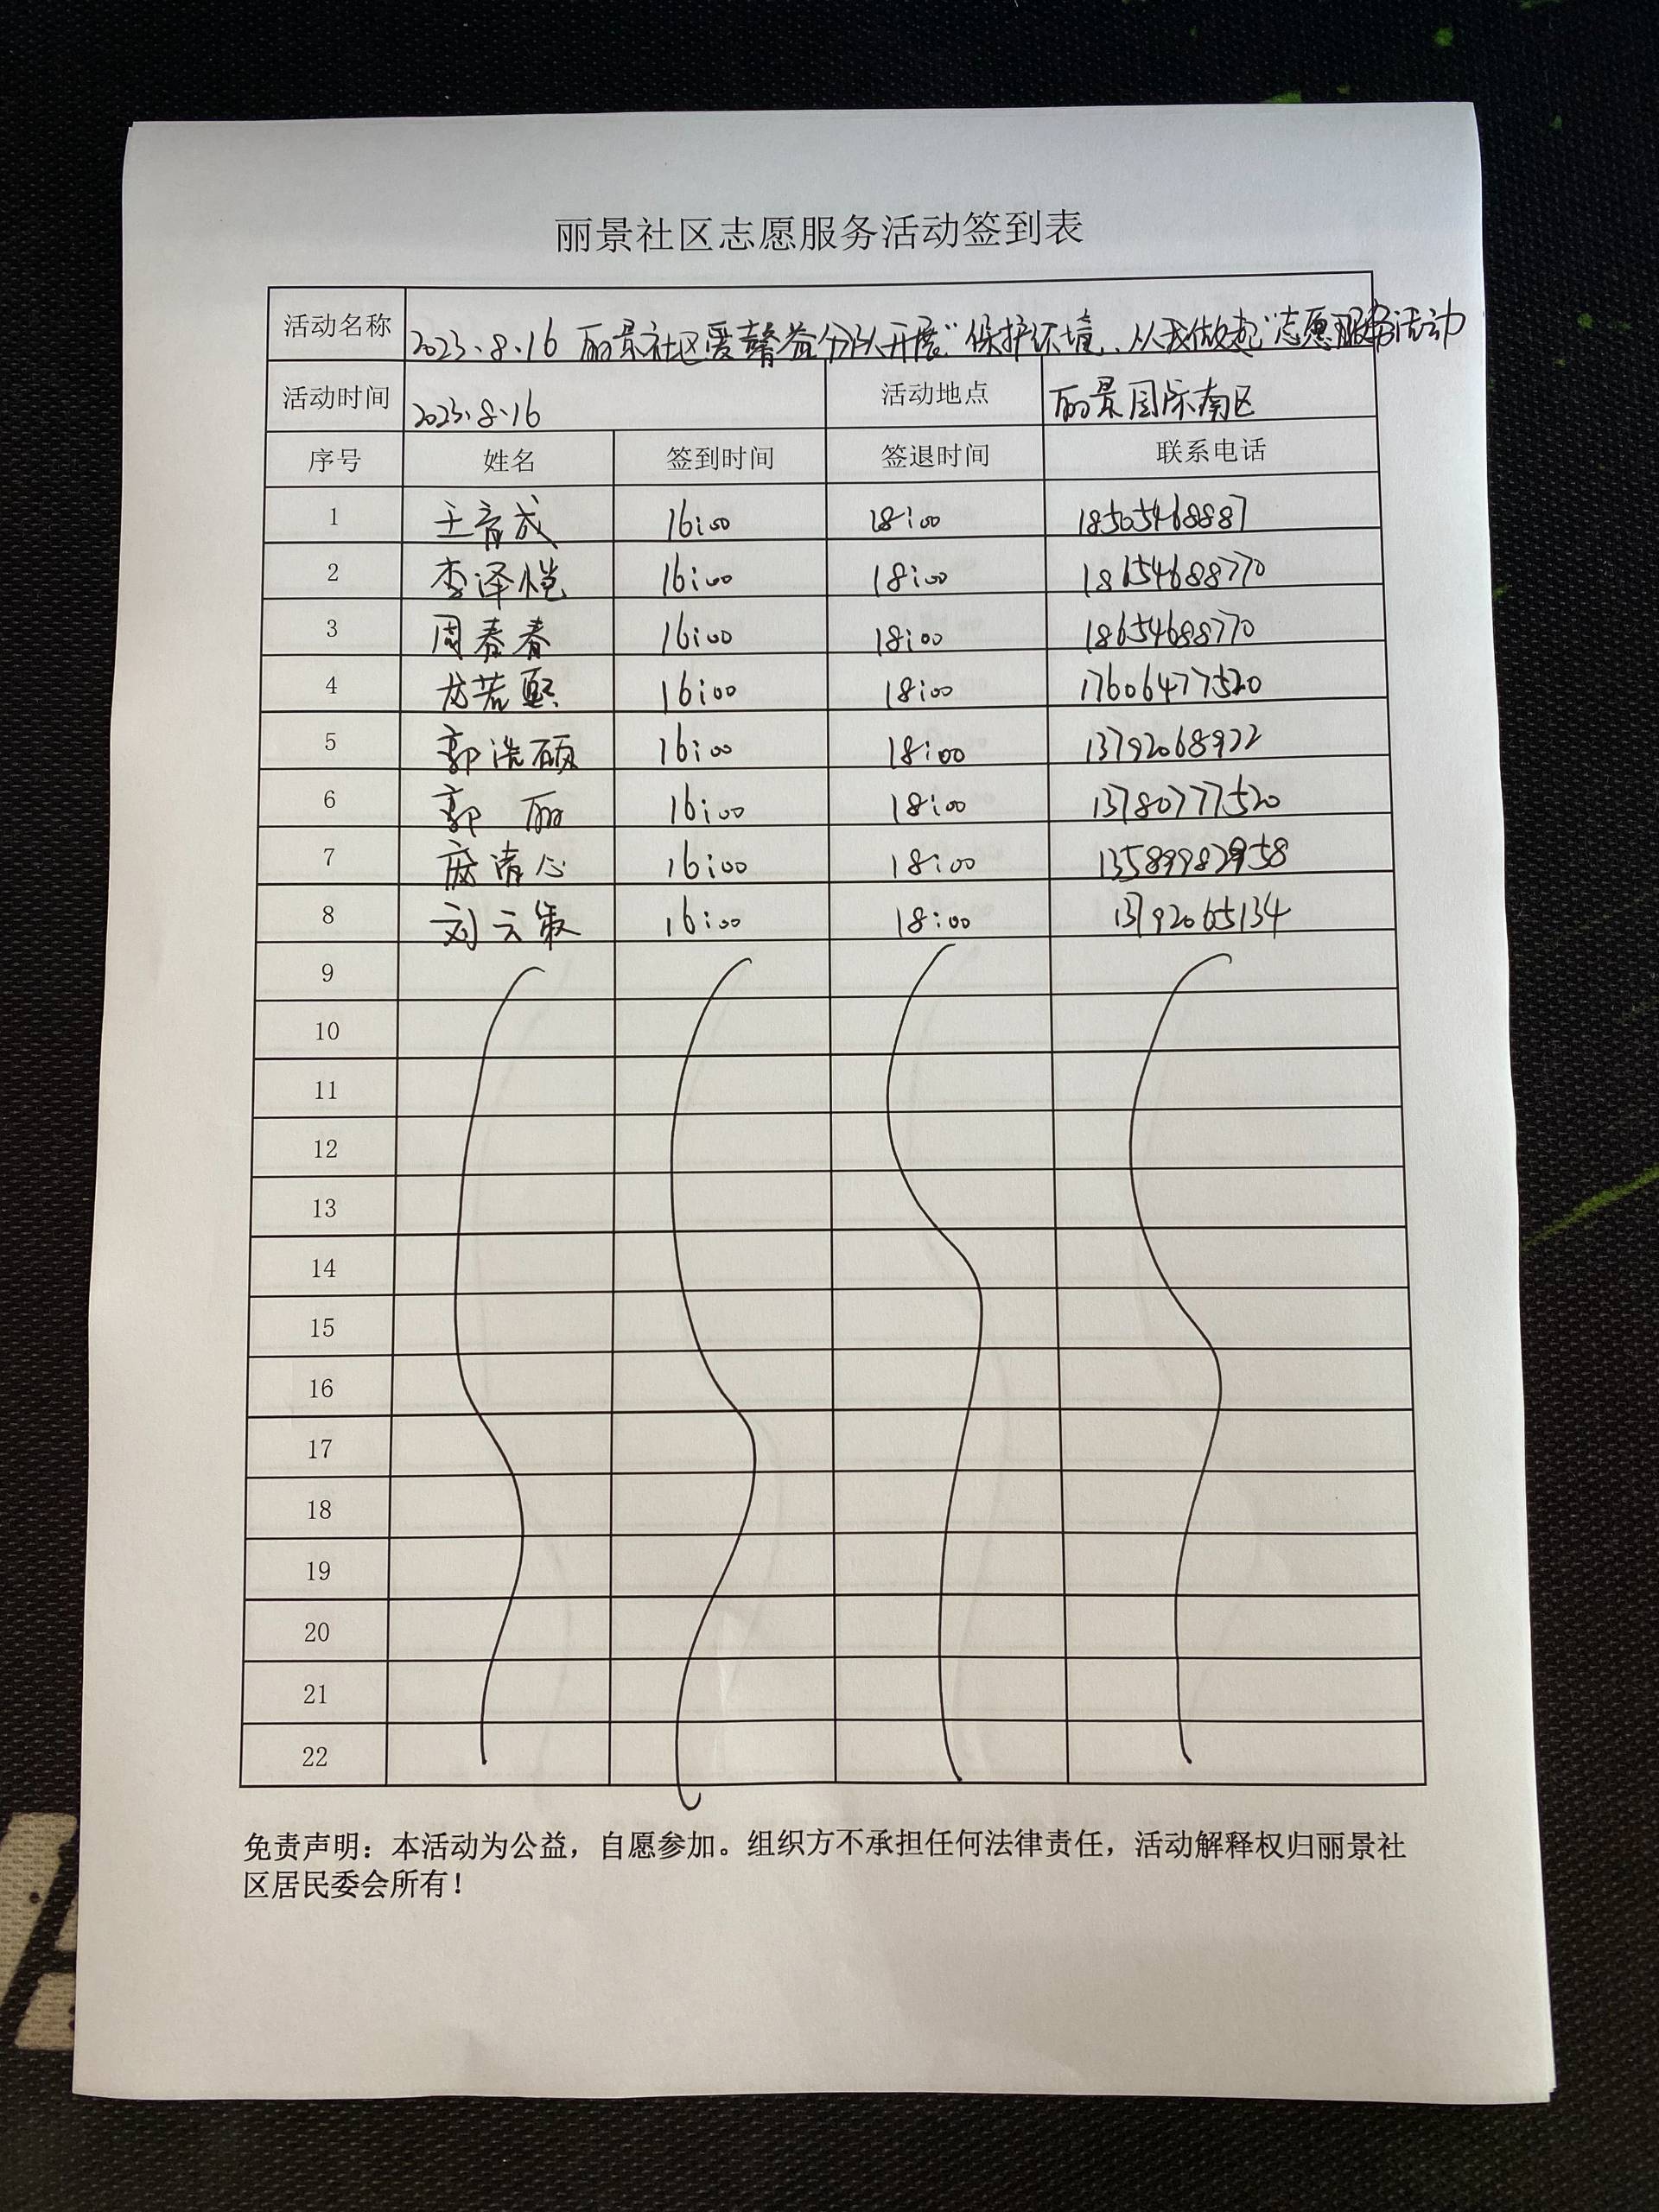 丽景社区志愿服务活动签到表
活动名称 2023.8.16 丽景社区爱馨益分队开展“保护环境，从我做起”志愿服务活动
活动时间 2023.8.16 活动地点 丽景国际南区
序号 姓名 签到时间 签退时间 联系电话
1 王育成 16:00 18:00 18505468887
2 李泽恺 16:00 18:00 18654688770
3 周春春 16:00 18:00 18654688770
4 尤若熙 16:00 18:00 17606477520
5 郭浩硕 16:00 18:00 13792068922
6 郭丽 16:00 18:00 13780777520
7 清心 16:00 18:00 13589982958
8 刘云 16:00 18:00 13792065134
9
10
11
12
13
14
15
16
17
18
19
20
21
22
免责声明：本活动为公益，自愿参加。组织方不承担任何法律责任，活动解释权归丽景社
区居民委会所有！